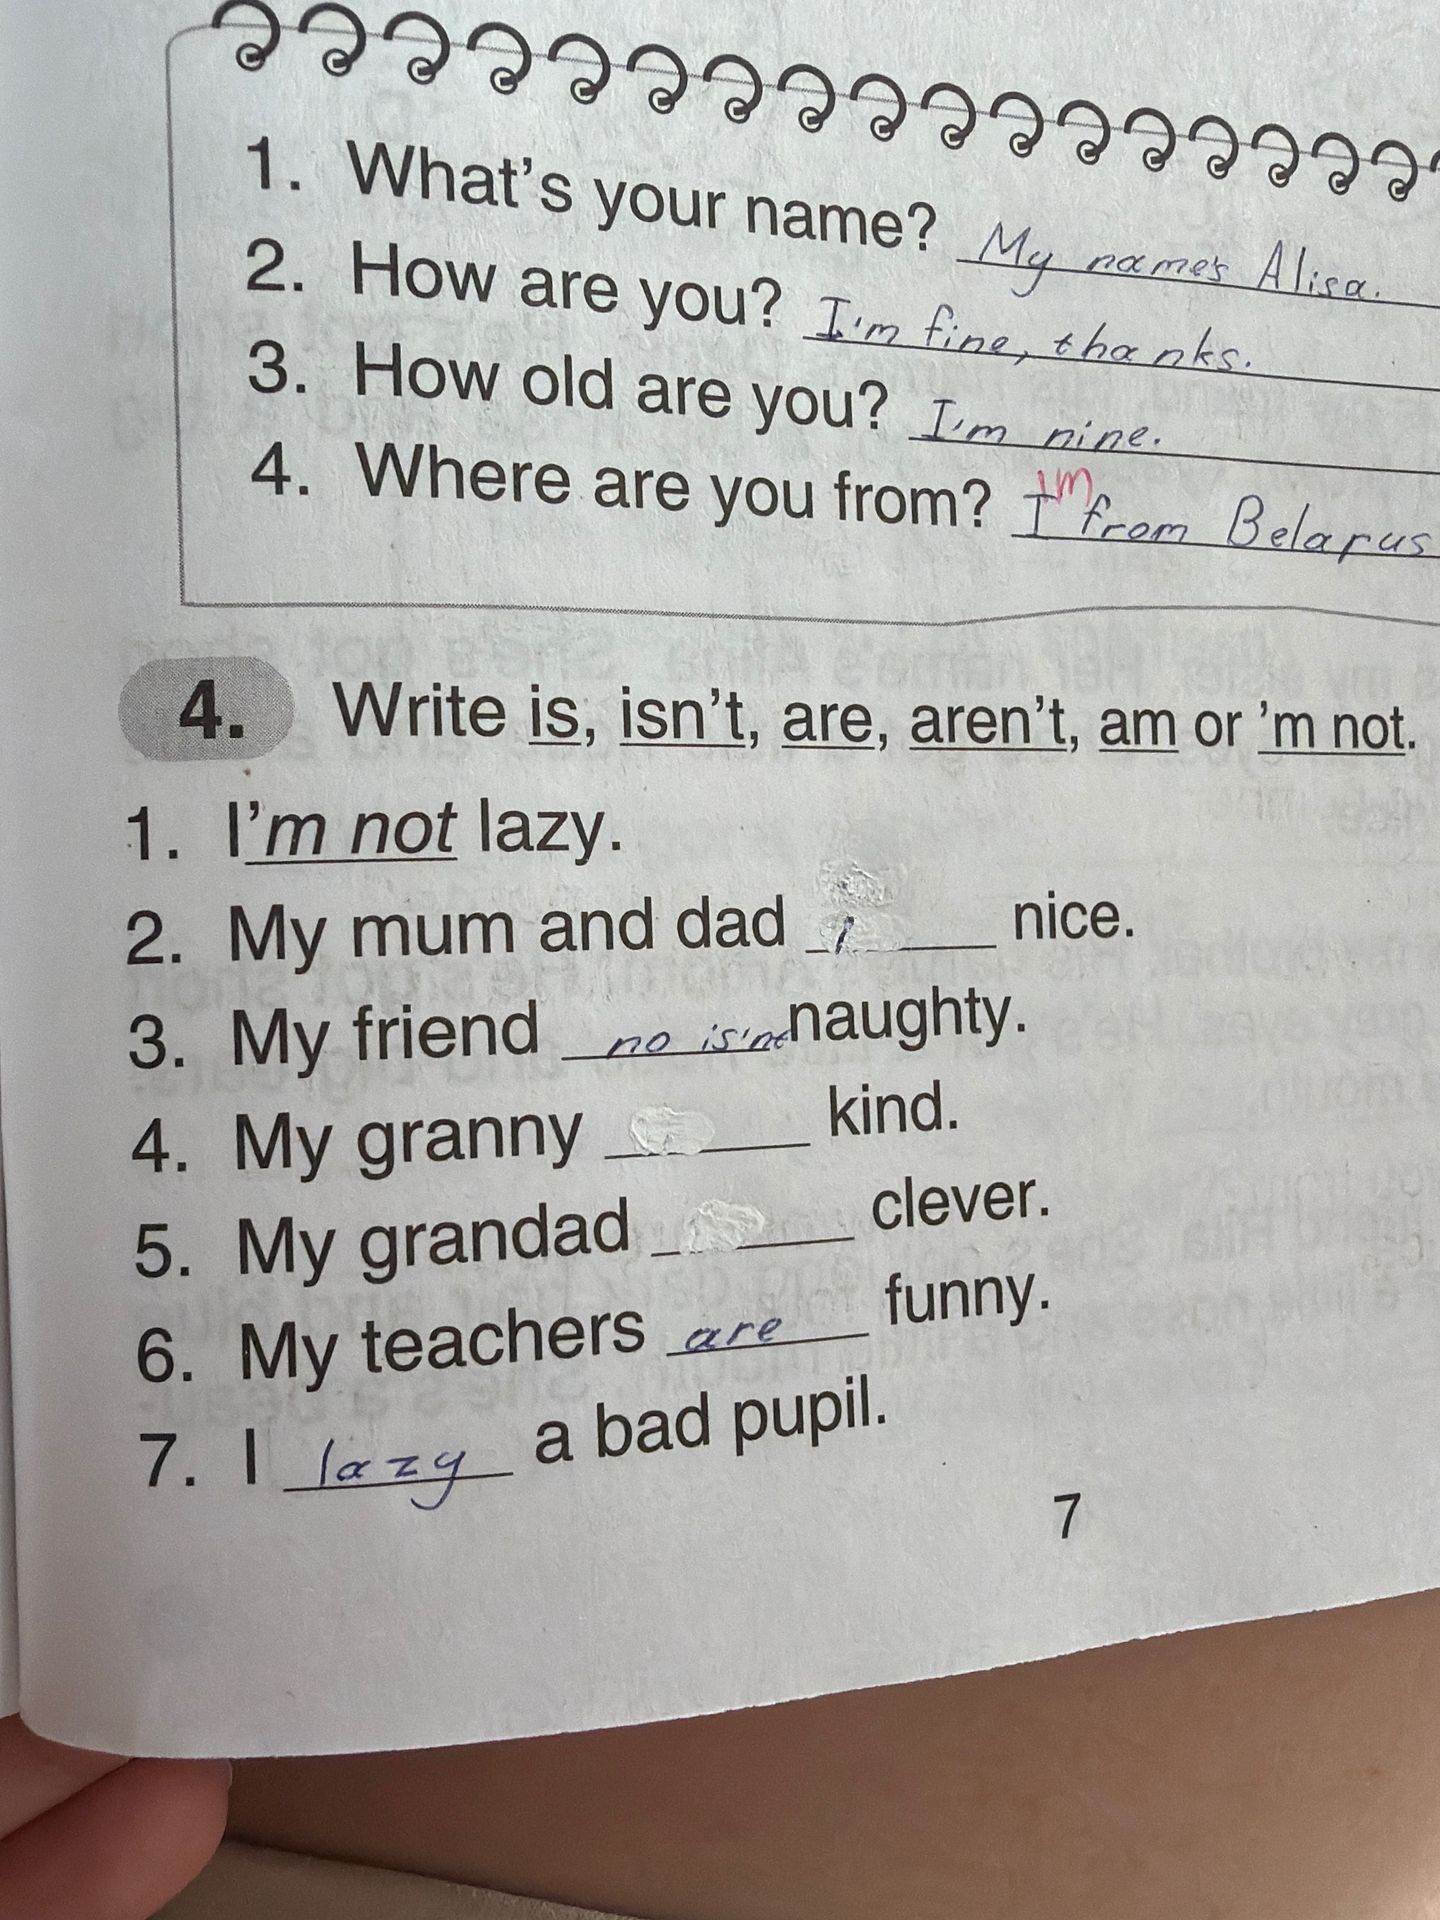 1. What's your name? My name's Alisa.
2. How are you? I'm fine, thanks.
3. How old are you? I'm nine.
4. Where are you from? I'm from Belarus
4. Write is, isn't, are, aren't, am or 'm not.
1. I'm not lazy.
2. My mum and dad ______ nice.
3. My friend no is'nt naughty.
4. My granny ______ kind.
5. My grandad ______ clever.
6. My teachers are funny.
7. I lazy a bad pupil.
7